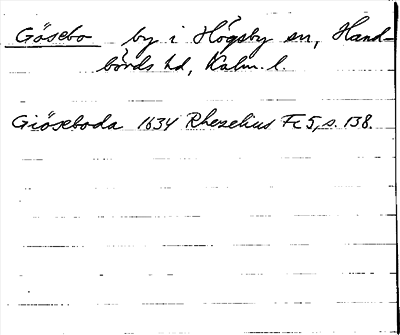 Gösebo by i Högsby sn, Hand-
börds hd, Kalm. l.
Giöseboda 1634 Rhezelius Fc 5, s. 138.